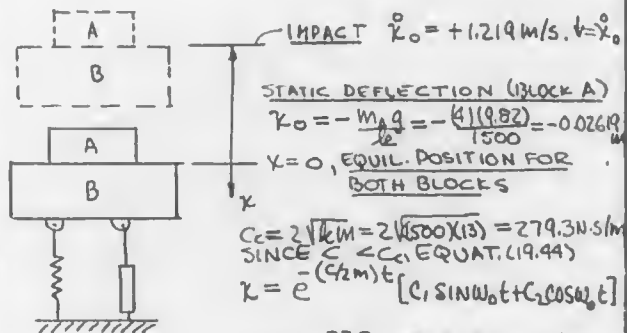 A
B
IMPACT ẋ₀ = +1.219 m/s. t=ẋ₀
STATIC DEFLECTION (BLOCK A)
x₀ = - m_A g / k = - (4)(9.82) / 1500 = -0.02619 m
A
B
x = 0, EQUIL. POSITION FOR
BOTH BLOCKS
x
C_c = 2√km = 2√(1500)(13) = 279.3 N·s/m
SINCE C < C_c, EQUAT. (19.44)
x = e^-(c/2m)t [C₁ SINω₀t + C₂COSω₀t]